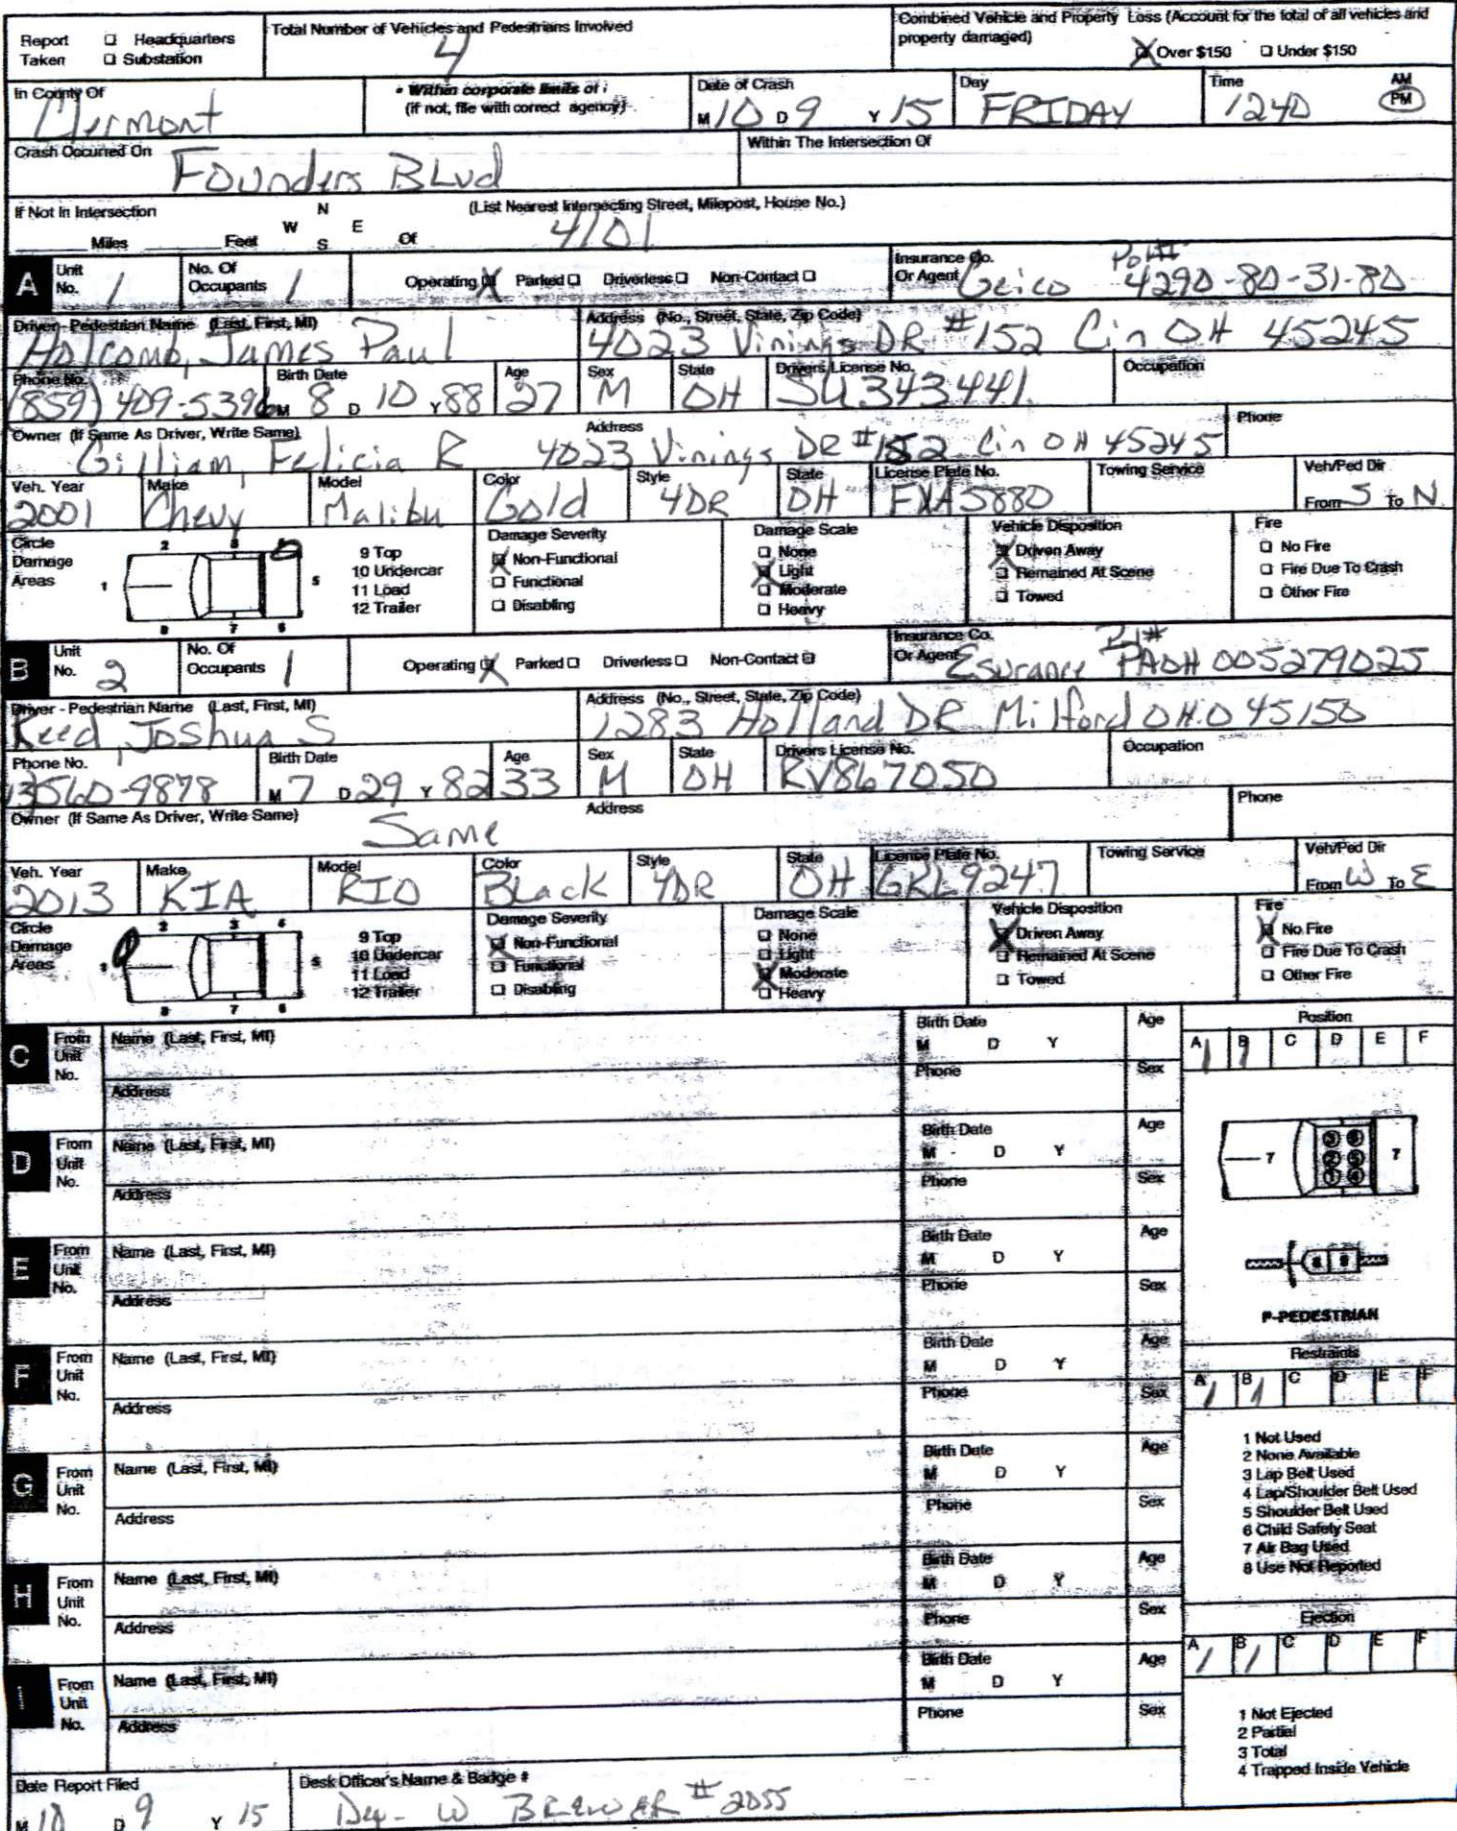 Report Taken ☐ Headquarters ☐ Substation
Total Number of Vehicles and Pedestrians Involved
4
Combined Vehicle and Property Loss (Account for the total of all vehicles and property damaged)
☒ Over $150 ☐ Under $150
In County Of
Clermont
• Within corporate limits of :
(if not, file with correct agency)
Date of Crash
M 10 D 9 Y 15
Day
FRIDAY
Time
1240
AM
PM
Crash Occurred On
Founders BLvd
Within The Intersection Of
If Not In Intersection
Miles Feet N W E S Of
(List Nearest Intersecting Street, Milepost, House No.)
4101
A Unit No. 1
No. Of Occupants 1
Operating ☒ Parked ☐ Driverless ☐ Non-Contact ☐
Insurance Co. Or Agent Geico Pol# 4290-80-31-80
Driver - Pedestrian Name (Last, First, MI)
Holcomb, James Paul
Address (No., Street, State, Zip Code)
4023 Vinings DR #152 Cin OH 45245
Phone No.
(859) 409-5396
Birth Date
M 8 D 10 Y 88
Age
27
Sex
M
State
OH
Drivers License No.
SU343441
Occupation
Owner (If Same As Driver, Write Same)
Gilliam, Felicia R
Address
4023 Vinings DR #152 Cin OH 45245
Phone
Veh. Year
2001
Make
Chevy
Model
Malibu
Color
Gold
Style
4DR
State
OH
License Plate No.
FXA5880
Towing Service
Veh/Ped Dir
From S To N
Circle Damage Areas
1 2 3 5 6 7 8
9 Top
10 Undercar
11 Load
12 Trailer
Damage Severity
☒ Non-Functional
☐ Functional
☐ Disabling
Damage Scale
☐ None
☒ Light
☐ Moderate
☐ Heavy
Vehicle Disposition
☒ Driven Away
☐ Remained At Scene
☐ Towed
Fire
☐ No Fire
☐ Fire Due To Crash
☐ Other Fire
B Unit No. 2
No. Of Occupants 1
Operating ☒ Parked ☐ Driverless ☐ Non-Contact ☐
Insurance Co. Or Agent Esurance Pol# PAOH 005279025
Driver - Pedestrian Name (Last, First, MI)
Reed, Joshua S
Address (No., Street, State, Zip Code)
1283 Holland DR Milford OH.O 45150
Phone No.
560-9878
Birth Date
M 7 D 29 Y 82
Age
33
Sex
M
State
OH
Drivers License No.
RV867050
Occupation
Owner (If Same As Driver, Write Same)
Same
Address
Phone
Veh. Year
2013
Make
KIA
Model
RIO
Color
Black
Style
4DR
State
OH
License Plate No.
GKL9247
Towing Service
Veh/Ped Dir
From W To E
Circle Damage Areas
1 2 3 4 5 6 7 8
9 Top
10 Undercar
11 Load
12 Trailer
Damage Severity
☒ Non-Functional
☐ Functional
☐ Disabling
Damage Scale
☐ None
☐ Light
☒ Moderate
☐ Heavy
Vehicle Disposition
☒ Driven Away
☐ Remained At Scene
☐ Towed
Fire
☒ No Fire
☐ Fire Due To Crash
☐ Other Fire
C From Unit No.
Name (Last, First, MI)
Address
Birth Date M D Y
Age
Phone
Sex
Position
A 1 B 1 C D E F
D From Unit No.
Name (Last, First, MI)
Address
Birth Date M D Y
Age
Phone
Sex
7 3 6 2 5 1 4 7
E From Unit No.
Name (Last, First, MI)
Address
Birth Date M D Y
Age
Phone
Sex
8 9
P-PEDESTRIAN
F From Unit No.
Name (Last, First, MI)
Address
Birth Date M D Y
Age
Phone
Sex
Restraints
A 1 B 1 C D E F
G From Unit No.
Name (Last, First, MI)
Address
Birth Date M D Y
Age
Phone
Sex
1 Not Used
2 None Available
3 Lap Belt Used
4 Lap/Shoulder Belt Used
5 Shoulder Belt Used
6 Child Safety Seat
7 Air Bag Used
8 Use Not Reported
H From Unit No.
Name (Last, First, MI)
Address
Birth Date M D Y
Age
Phone
Sex
Ejection
A 1 B 1 C D E F
I From Unit No.
Name (Last, First, MI)
Address
Birth Date M D Y
Age
Phone
Sex
1 Not Ejected
2 Partial
3 Total
4 Trapped Inside Vehicle
Date Report Filed
M 10 D 9 Y 15
Desk Officer's Name & Badge #
Dep- W BREWER #2055